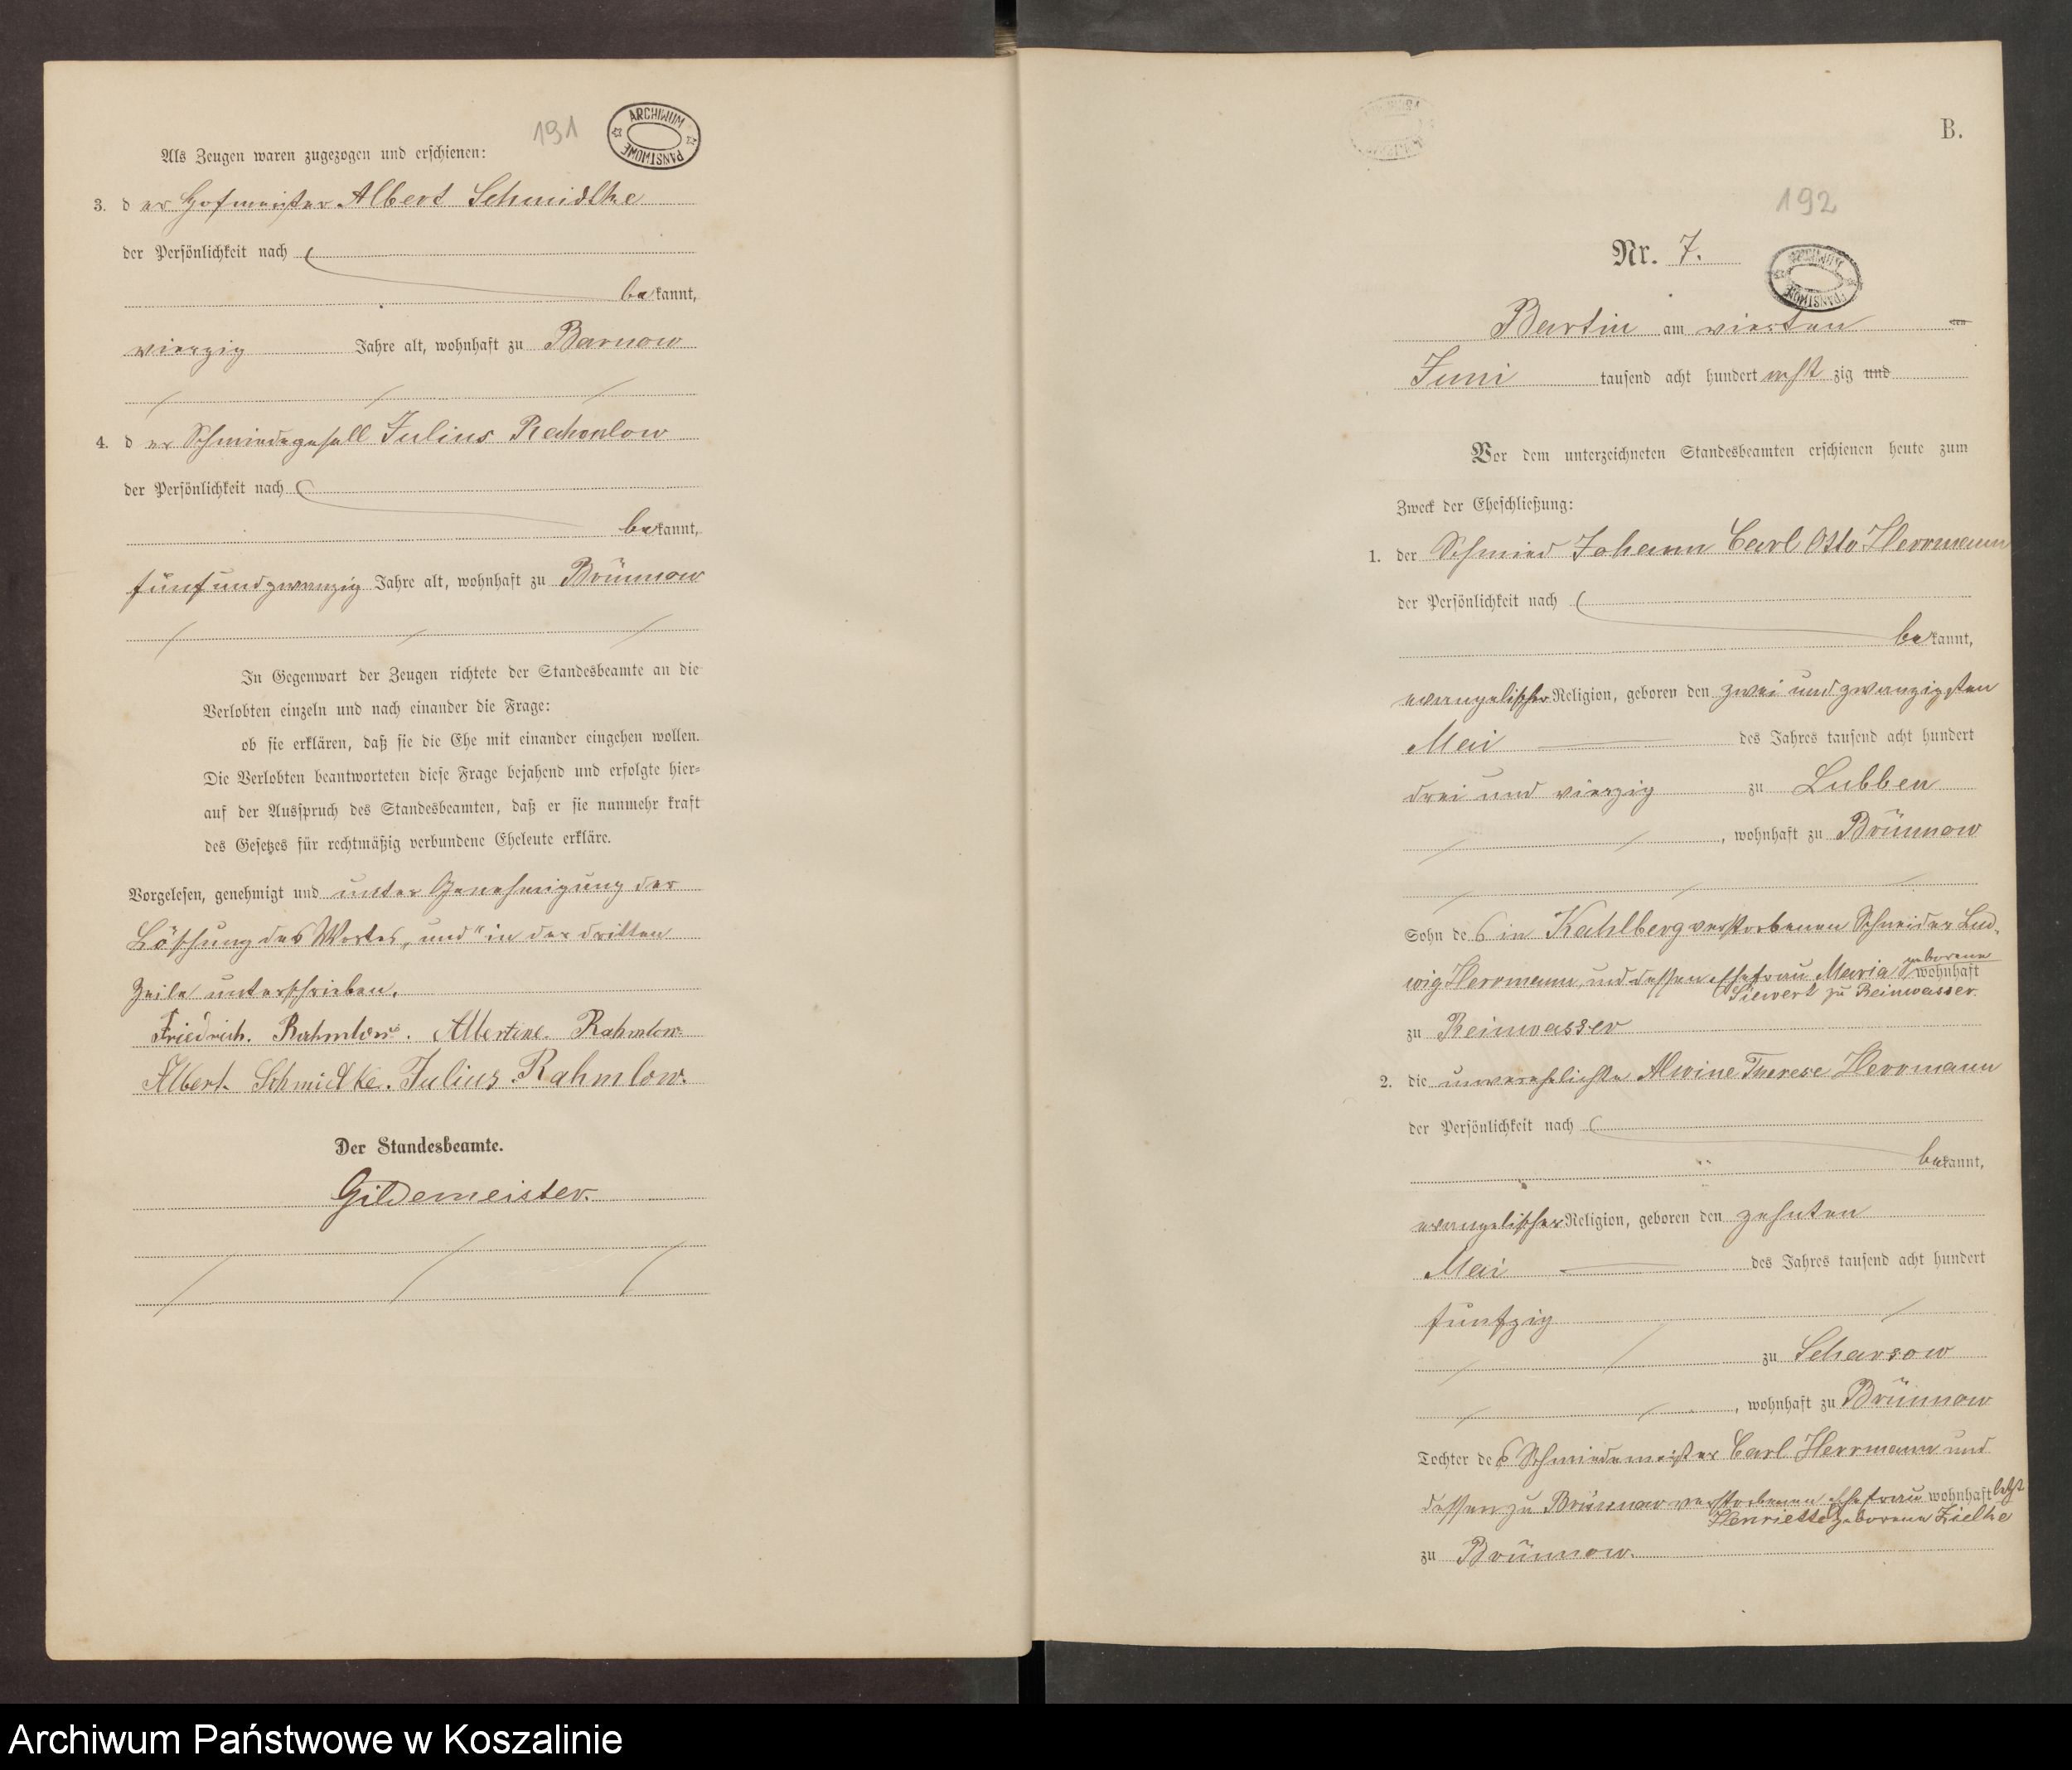 191
ARCHIWUM PAŃSTWOWE
Als Zeugen waren zugezogen und erschienen:
3. der Hofmeister Albert Schmidtke
der Persönlichkeit nach
bekannt,
vierzig Jahre alt, wohnhaft zu Barnow
4. der Schmiedegesell Julius Rahmlow
der Persönlichkeit nach
bekannt,
fünfundzwanzig Jahre alt, wohnhaft zu Brünnow
In Gegenwart der Zeugen richtete der Standesbeamte an die
Verlobten einzeln und nach einander die Frage:
ob sie erklären, daß sie die Ehe mit einander eingehen wollen.
Die Verlobten beantworteten diese Frage bejahend und erfolgte hier=
auf der Ausspruch des Standesbeamten, daß er sie nunmehr kraft
des Gesetzes für rechtmäßig verbundene Eheleute erkläre.
Vorgelesen, genehmigt und unter Genehmigung der
Löschung des Wortes „und" in der dritten
Zeile unterschrieben.
Friedrich. Rahmlow. Albertine. Rahmlow.
Albert Schmidtke. Julius Rahmlow.
Der Standesbeamte.
Gildemeister.
B.
192
Nr. 7.
PAŃSTWOWE
Bartin am vierten ten
Juni tausend acht hundert acht zig und
Vor dem unterzeichneten Standesbeamten erschienen heute zum
Zweck der Eheschließung:
1. der Schmied Johann Carl Otto Herrmann
der Persönlichkeit nach
bekannt,
evangelischer Religion, geboren den zwei und zwanzigsten
Mai des Jahres tausend acht hundert
drei und vierzig zu Lubben
, wohnhaft zu Brünnow
Sohn des in Kahlberg verstorbenen Schneider Lud-
wig Herrmann und dessen Ehefrau Maria geborene wohnhaft
Siewert zu Reinwasser.
zu Reinwasser
2. die unverehelichte Alwine Therese Herrmann
der Persönlichkeit nach
bekannt,
evangelischer Religion, geboren den zehnten
Mai des Jahres tausend acht hundert
fünfzig
zu Scharsow
, wohnhaft zu Brünnow
Tochter des Schmiedemeister Carl Herrmann und
dessen zu Brünnow verstorbenen Ehefrau wohnhaft
Henriette geborene Zielke
zu Brünnow.
Archiwum Państwowe w Koszalinie